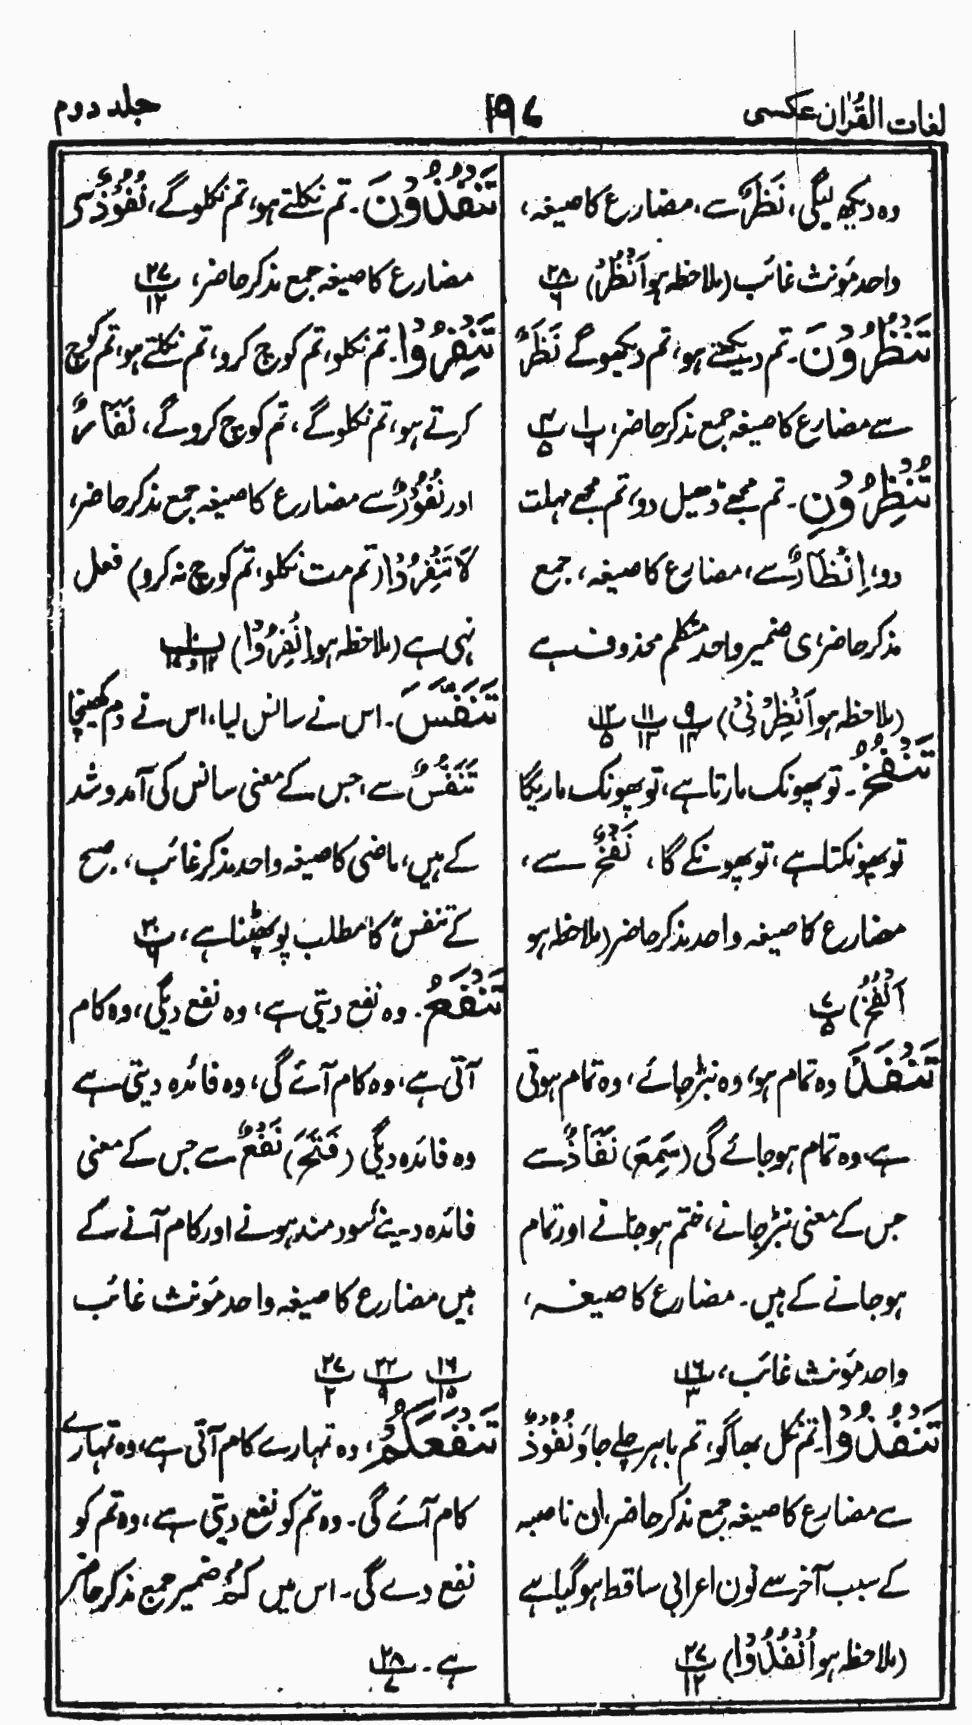 لغات القرآن عکسی
۱۹۷
جلد دوم
وہ دیکھ لیگی، نَظَرٌ سے، مضارع کا صیغہ،
واحد مؤنث غائب (ملاحظہ ہو اُنْظُرْ) ۲۸/۶
تَنْظُرُوْنَ۔ تم دیکھتے ہو، تم دیکھو گے نَظَرٌ
سے مضارع کا صیغہ جمع مذکر حاضر، ۱/۶ ۴/۵
تُنْظِرُوْنِ۔ تم مجھے ڈھیل دو، تم مجھے مہلت
دو، اِنْظَارٌ سے، مضارع کا صیغہ، جمع
مذکر حاضر، ی ضمیر واحد متکلم محذوف ہے
(ملاحظہ ہو اَنْظِرْنِیْ) ۹/۱۴ ۱۱/۱۳ ۱۲/۵
تَنْفُخُ۔ تو پھونک مارتا ہے، تو پھونک ماریگا
تو پھونکتا ہے، تو پھونکے گا، نَفْخٌ سے،
مضارع کا صیغہ واحد مذکر حاضر (ملاحظہ ہو
اَنْفُخُ) ۷/۵
تَنْفَدَ وہ تمام ہو، وہ نبڑ جائے، وہ تمام ہوتی
ہے، وہ تمام ہو جائے گی (سَمِعَ) نَفَادٌ سے
جس کے معنی نبڑ جانے، ختم ہو جانے اور تمام
ہو جانے کے ہیں۔ مضارع کا صیغہ،
واحد مؤنث غائب، ۱۶/۳
تَنْفُذُوْا تم نکل بھاگو، تم باہر چلے جاؤ نُفُوْذٌ
سے مضارع کا صیغہ جمع مذکر حاضر، ان ناصبہ
کے سبب آخر سے نون اعرابی ساقط ہو گیا ہے
(ملاحظہ ہو اُنْفُذُوْا) ۲۷/۱۲
تَنْفُذُوْنَ۔ تم نکلتے ہو، تم نکلو گے، نُفُوْذٌ کر
مضارع کا صیغہ جمع مذکر حاضر، ۲۷/۱۲
تَنْفِرُوْا۔ تم نکلو، تم کوچ کرو، تم نکلتے ہو، تم کوچ
کرتے ہو، تم نکلو گے، تم کوچ کرو گے، نِفَارٌ
اور نُفُوْرٌ سے مضارع کا صیغہ جمع مذکر حاضر،
لَا تَنْفِرُوْا (تم مت نکلو، تم کوچ نہ کرو) فعل
نہی ہے (ملاحظہ ہو اِنْفِرُوْا) ۱۰/۱۲ و ۱۷
تَنَفَّسَ۔ اس نے سانس لیا، اس نے دم کھینچا
تَنَفُّسٌ سے، جس کے معنی سانس کی آمد و شد
کے ہیں، ماضی کا صیغہ واحد مذکر غائب، صبح
کے تنفس کا مطلب پو پھٹنا ہے، ۳۰/۶
تَنْفَعُ۔ وہ نفع دیتی ہے، وہ نفع دیگی، وہ کام
آتی ہے، وہ کام آئے گی، وہ فائدہ دیتی ہے
وہ فائدہ دیگی (فَتَحَ) نَفْعٌ سے جس کے معنی
فائدہ دینے سود مند ہونے اور کام آنے کے
ہیں مضارع کا صیغہ واحد مؤنث غائب
۱۶/۱۵ ۲۲/۹ ۲۷/۲
تَنْفَعَكُمْ، وہ تمہارے کام آتی ہے، وہ تمہارے
کام آئے گی۔ وہ تم کو نفع دیتی ہے، وہ تم کو
نفع دے گی۔ اس میں کُمْ ضمیر جمع مذکر حاضر
ہے۔ ۲۸/۷